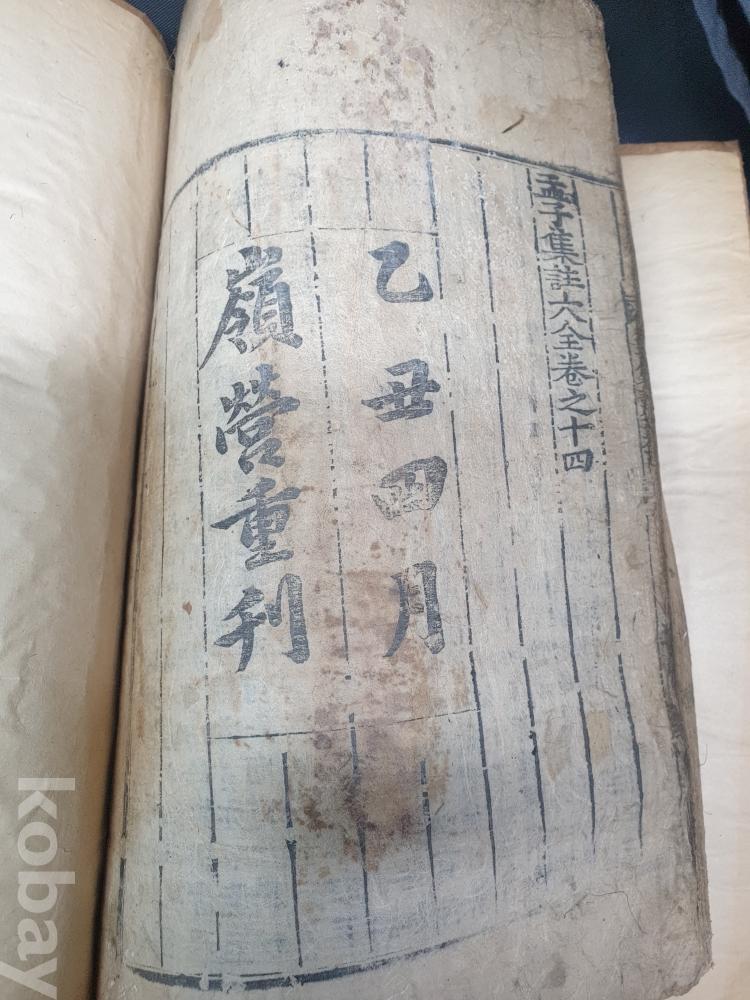 孟子集註大全卷之十四
乙丑四月
嶺營重刊
kobay